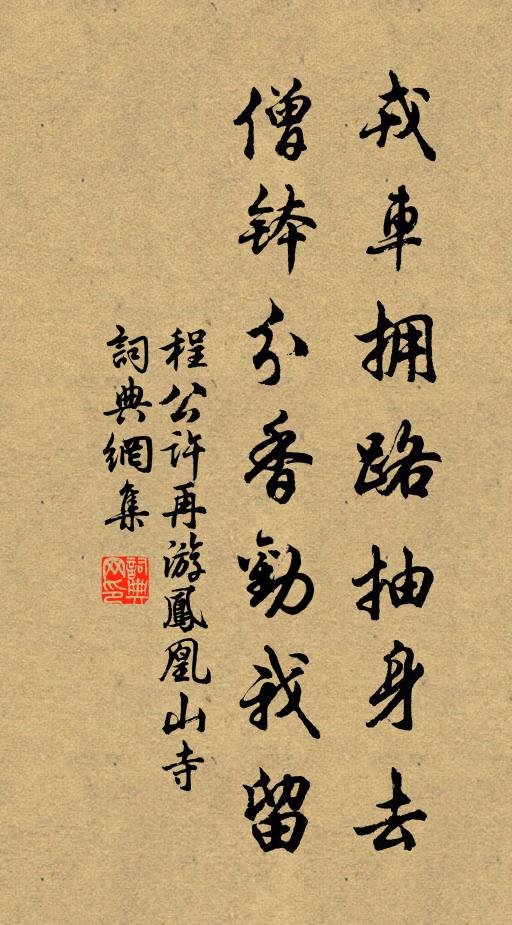 戎車拥路抽身去
僧鉢分香勸我留
程公许再游鳳凰山寺
詞典網集
詞典网印